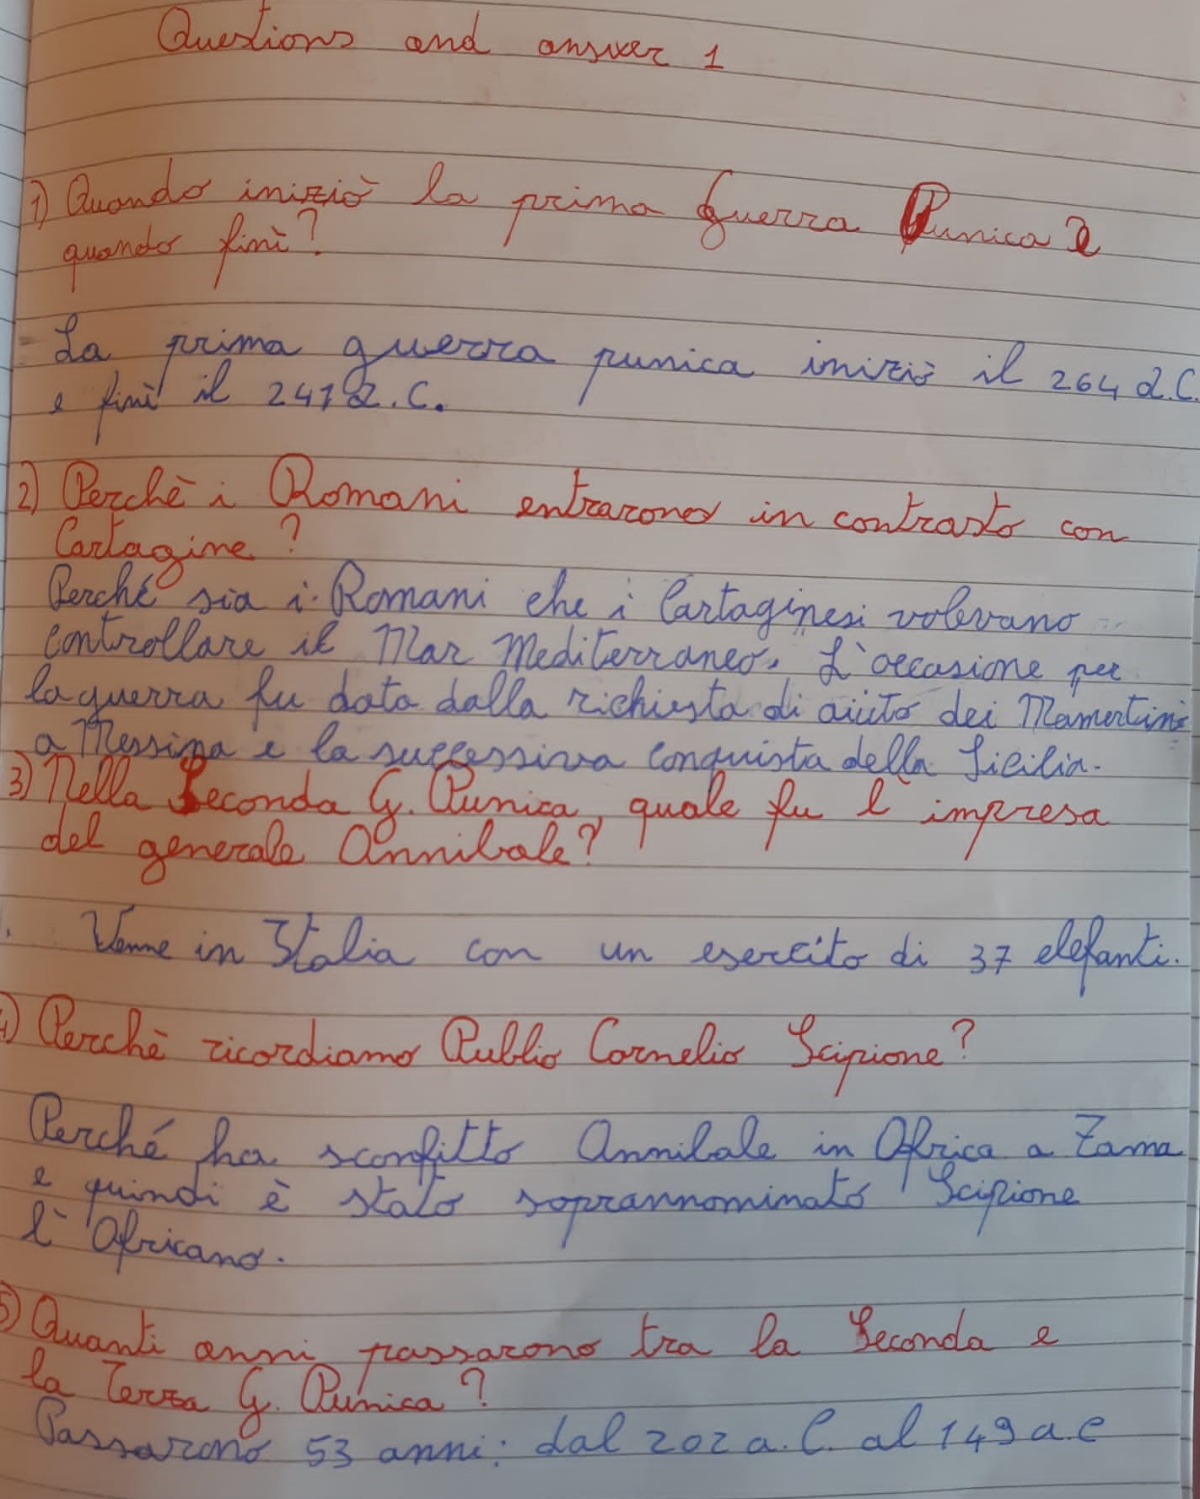 Questions and answer 1
1) Quando iniziò la prima Guerra Punica e
quando finì?
La prima guerra punica iniziò il 264 a.C.
e finì il 241 a.C.
2) Perchè i Romani entrarono in contrasto con
Cartagine?
Perché sia i Romani che i Cartaginesi volevano
controllare il Mar Mediterraneo. L'occasione per
la guerra fu data dalla richiesta di aiuto dei Mamertini
a Messina e la successiva conquista della Sicilia.
3) Nella Seconda G. Punica, quale fu l'impresa
del generale Annibale?
Venne in Italia con un esercito di 37 elefanti.
4) Perchè ricordiamo Publio Cornelio Scipione?
Perché ha sconfitto Annibale in Africa a Zama
e quindi è stato soprannominato Scipione
l'Africano.
5) Quanti anni passarono tra la Seconda e
la Terza G. Punica?
Passarono 53 anni: dal 202 a.C. al 149 a.C